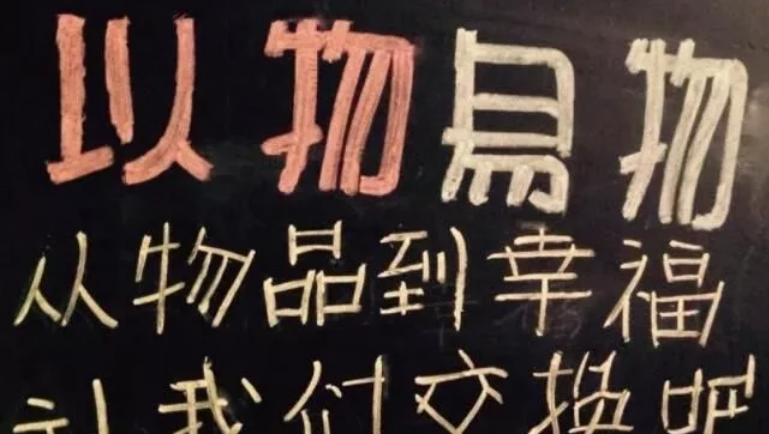 以物易物
从物品到幸福
让我们交换吧